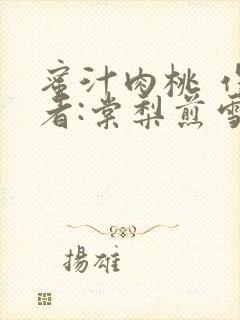 蜜汁肉桃 作
者:棠梨煎雪
揚雄